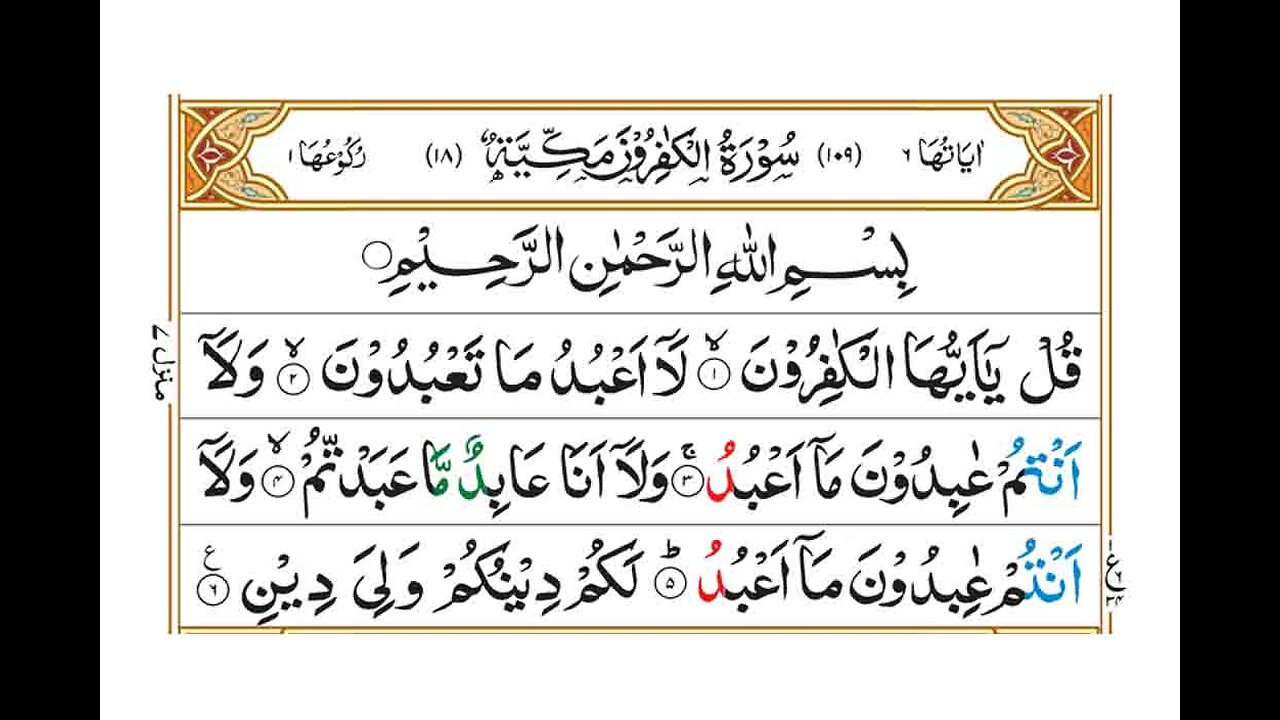 اٰیَاتُهَا ۶ (۱۰۹) سُوْرَةُ الْكٰفِرُوْنَ مَكِّیَّةٌ (۱۸) رُكُوْعُهَا ۱
بِسْمِ اللّٰهِ الرَّحْمٰنِ الرَّحِیْمِ
قُلْ یٰۤاَیُّهَا الْكٰفِرُوْنَ ۙ﴿۱﴾ لَاۤ اَعْبُدُ مَا تَعْبُدُوْنَ ۙ﴿۲﴾ وَلَاۤ
اَنْتُمْ عٰبِدُوْنَ مَاۤ اَعْبُدُ ۚ﴿۳﴾ وَلَاۤ اَنَا عَابِدٌ مَّا عَبَدْتُّمْ ۙ﴿۴﴾ وَلَاۤ
اَنْتُمْ عٰبِدُوْنَ مَاۤ اَعْبُدُ ؕ﴿۵﴾ لَكُمْ دِیْنُكُمْ وَلِیَ دِیْنِ ﴿۶﴾ ع
منزل ۷
ع